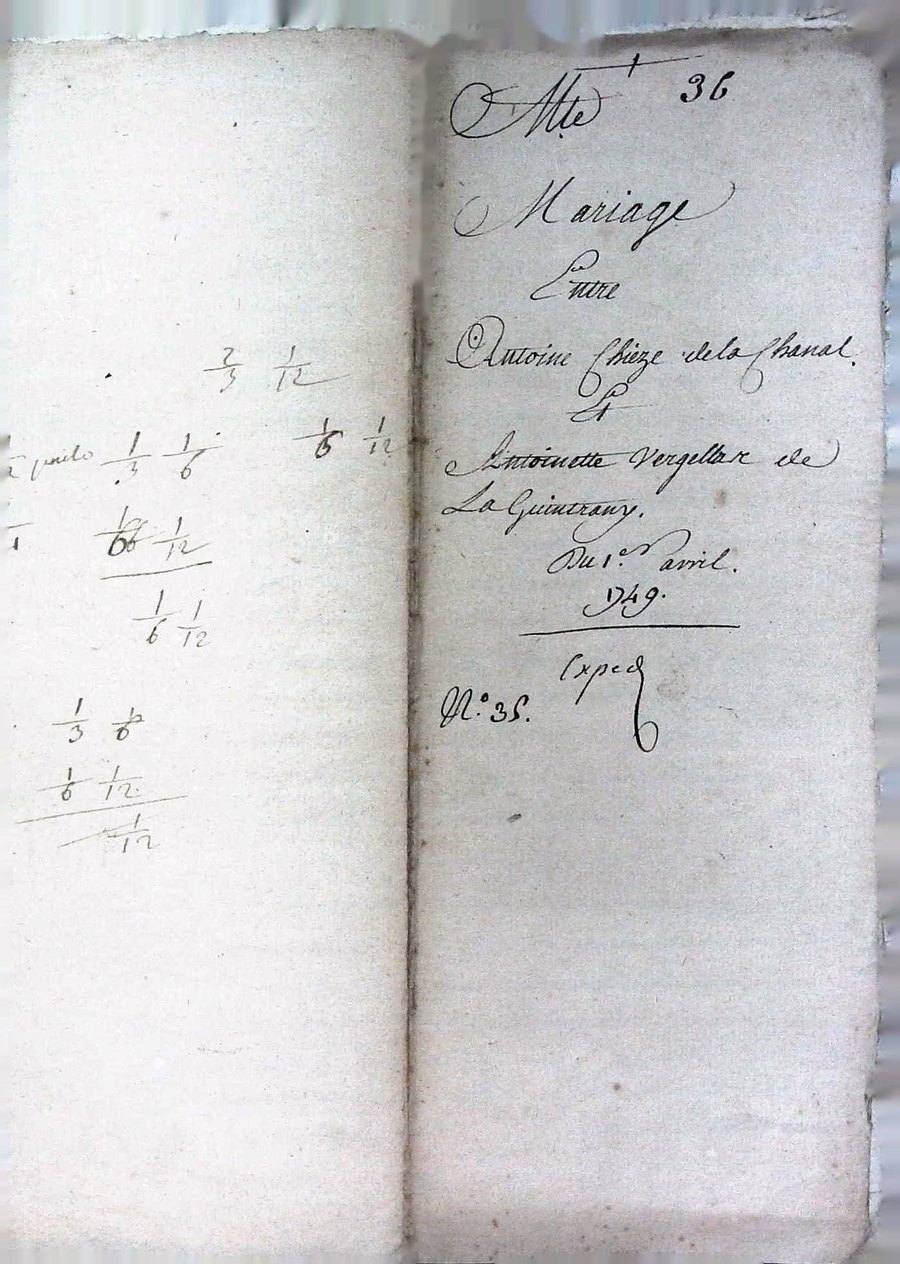 2/3 1/12
1/3 1/6 1/6 1/12
1/6 1/12
1/6 1/12
1/3 1/6
1/6 1/12
1/12
36
Mariage
Entre
Antoine Chieze dela Chanal.
Et
Antoinette Vergellar de
La Guintrany.
Du 1er avril.
1749.
Exped
N.o 35.